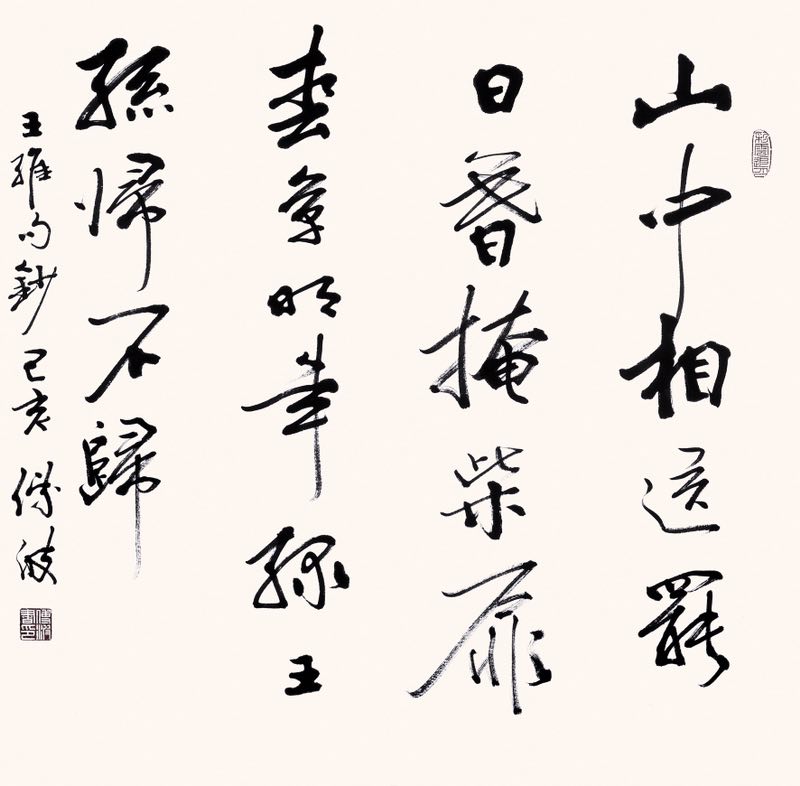 山中相送罷
日暮掩柴扉
春草明年綠王
孫帰不歸
王維句鈔己亥傅波